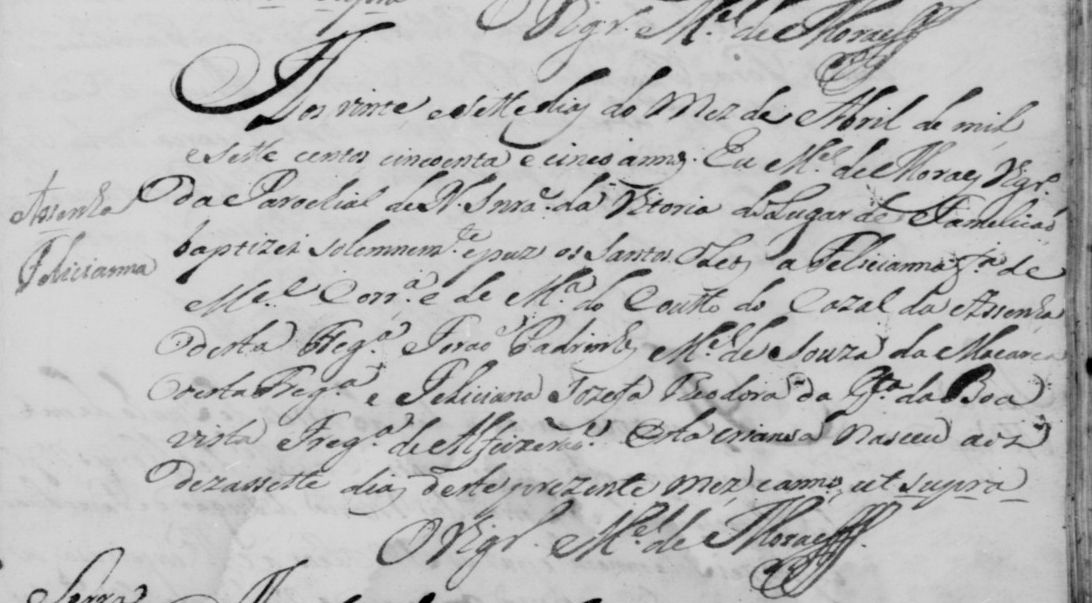 Supra
Vigr.º M.el de Moraes
Aos vinte e sette dias do Mez de Abril de mil
e sette centos cincoenta e cinco annos. Eu M.el de Moraes Vigr.º
Da Parochial de N. Snra. da Vitoria do Lugar de Famelicaõ
baptizei solemnem.te e puz os Santos Oleos a Felicianna f.ª de
M.el Corr.ª e de M.ª do Coutto do Cazal da Assenha
Desta Freg.ª Foraõ Padrinhos M.el de Souza da Macarca
desta Freg.ª e Feliciana Jozefa Teodora da Q.ta da Boa
vista Freg.ª de Alfeizeraõ. Esta criansa Nasceu aos
Dezassette dias deste prezente Mez e anno, ut supra
O Vigr.º M.el de Moraes
Assenha
Felicianna
Serra